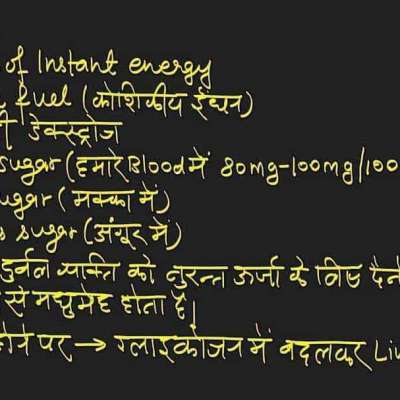 of Instant energy
fuel (कोशिकीय ईंधन)
डेक्स्ट्रोज
sugar (हमारे Blood में 80mg-100mg/100
ugar (मक्का में)
s sugar (अंगूर में)
दुर्बल व्यक्ति को तुरन्त ऊर्जा के लिए देने
से मधुमेह होता है।
होने पर → ग्लाइकोजन में बदलकर Liv